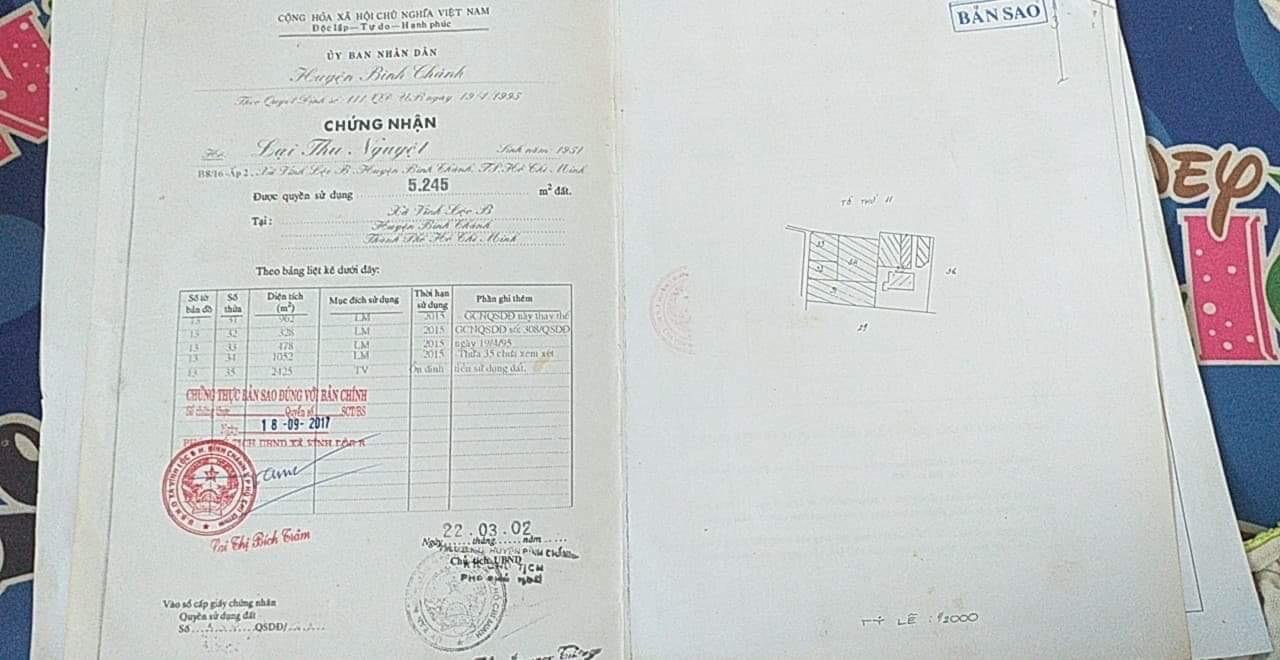 CỘNG HÒA XÃ HỘI CHỦ NGHĨA VIỆT NAM
Độc lập – Tự do – Hạnh phúc
ỦY BAN NHÂN DÂN
Huyện Bình Chánh
Theo Quyết Định số: 111/QĐ-UB ngày 19/4/1995
CHỨNG NHẬN
Hộ Lại Thu Nguyệt Sinh năm: 1951
B8/16-Ấp 2, Xã Vĩnh Lộc B, Huyện Bình Chánh, TP. Hồ Chí Minh
Được quyền sử dụng 5.245 m² đất.
Tại: Xã Vĩnh Lộc B
Huyện Bình Chánh
Thành Phố Hồ Chí Minh
Theo bảng liệt kê dưới đây:
Số tờ bản đồ Số thửa Diện tích (m²) Mục đích sử dụng Thời hạn sử dụng Phần ghi thêm
13 31 962 LM 2015 GCNQSDĐ này thay thế
13 32 328 LM 2015 GCNQSDĐ số: 308/QSDĐ
13 33 478 LM 2015 ngày 19/4/95
13 34 1052 LM 2015 Thửa 35 chưa xem xét
13 35 2425 TV Ổn định tiền sử dụng đất.
CHỨNG THỰC BẢN SAO ĐÚNG VỚI BẢN CHÍNH
Số chứng thực Quyển số SCT/BS
Ngày 18-09-2017
TỊCH UBND XÃ VĨNH LỘC B
Bích Trâm
22.03.02
Ngày tháng năm
Chủ tịch UBND
Vào sổ cấp giấy chứng nhận
Quyền sử dụng đất
Số QSDĐ/
BẢN SAO
TỜ THỨ 11
33
34
36
29
TỶ LỆ : 1/2000